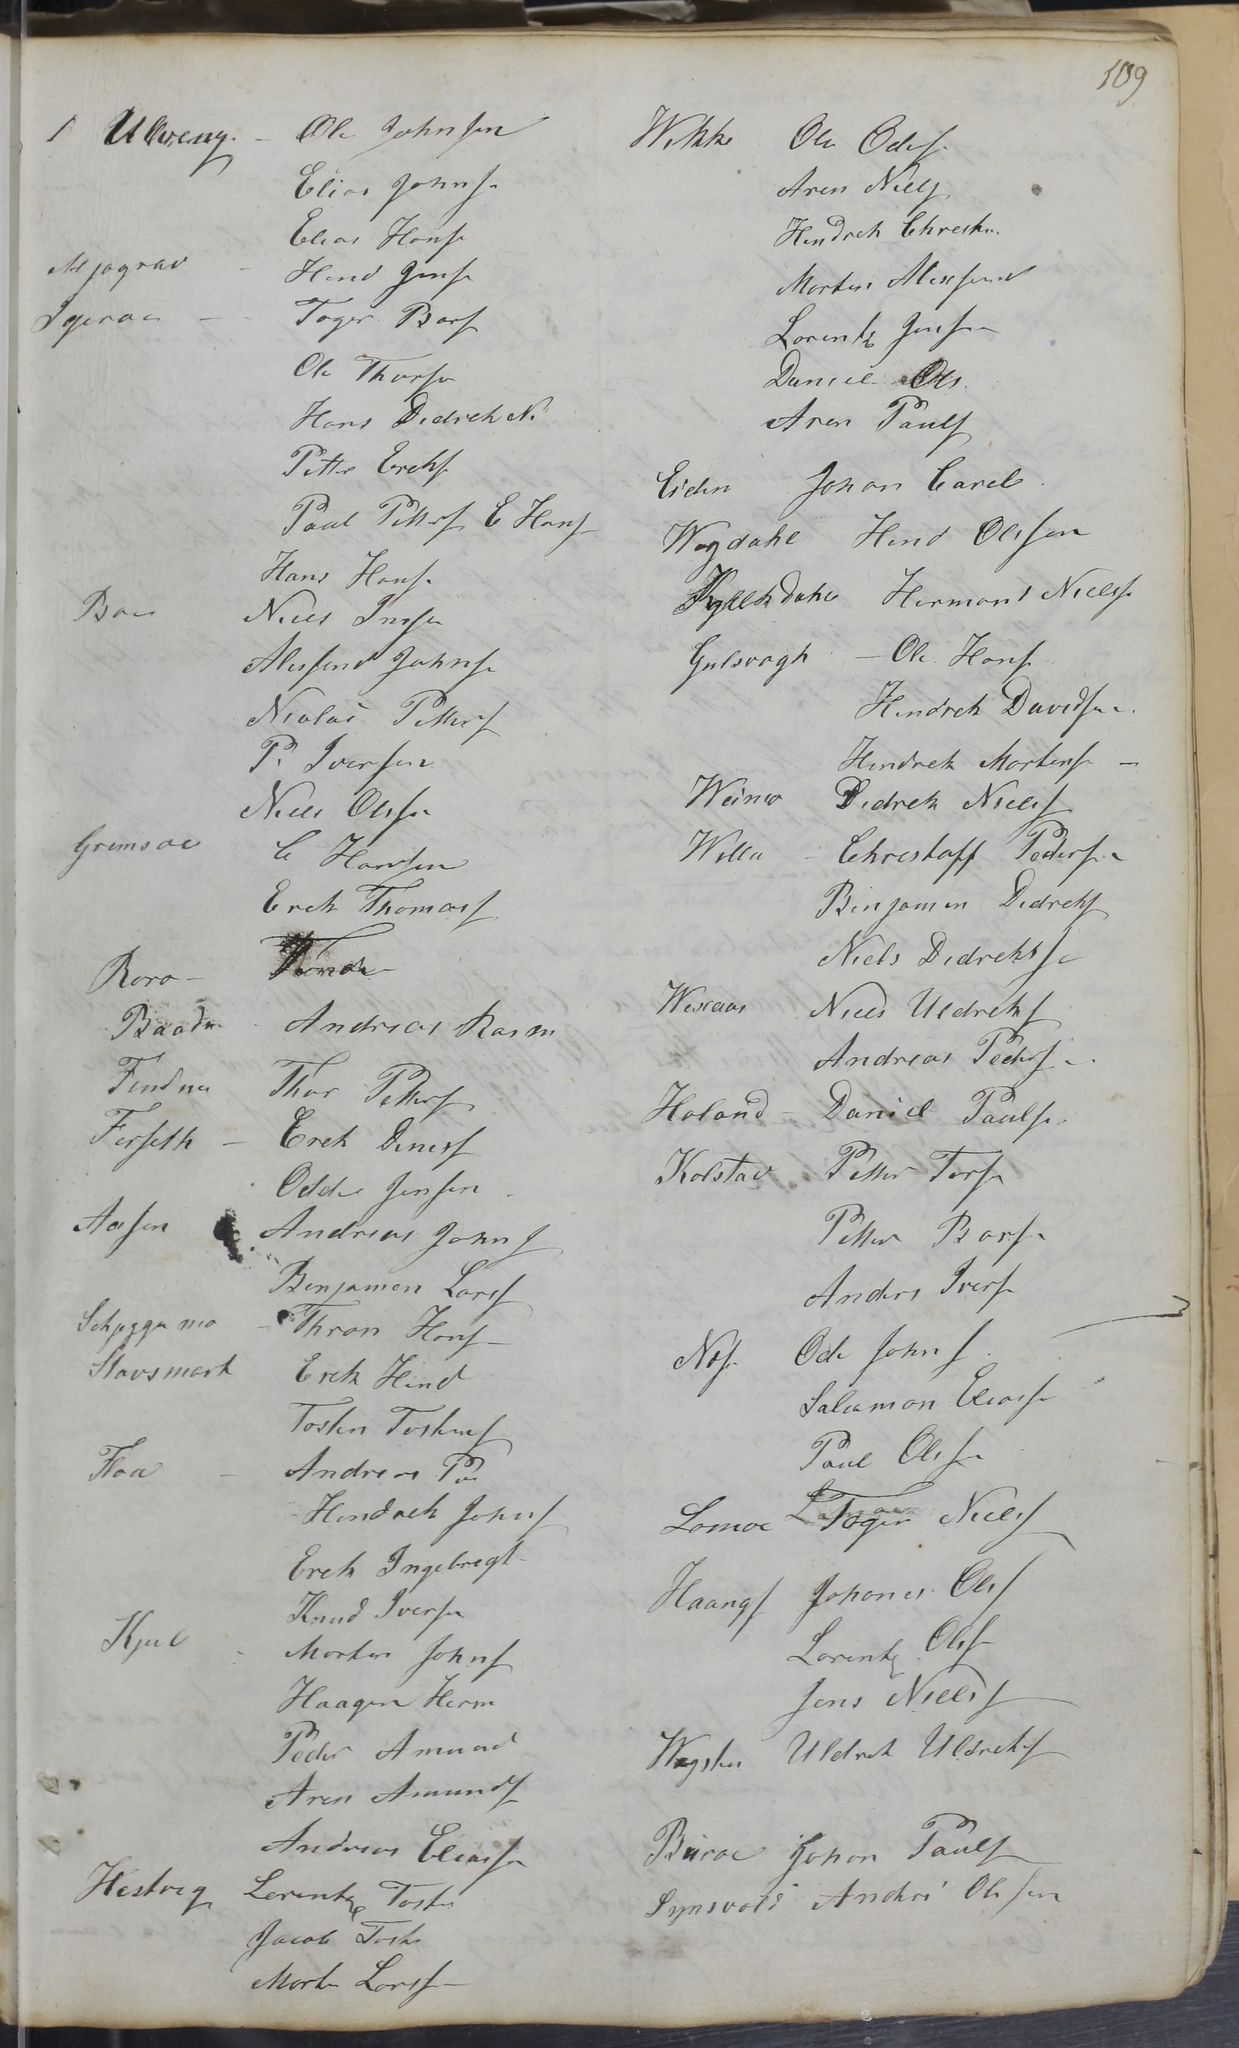 109
1 Ulveng. - Ole Johnsen
Elias Johnsn
Elias Hansn
Mjograv - Hend Jensn
Toger Barsn
Ole Thorsn
Hans Didrek N.
Petter Ereksn
Paul Pettersn E Hansn
Hans Hansn
Boe Niels Ingsn
Alexsend Johnsn
Nicolai Pettersn
P. Iversen
Niels Olssn
Gremsoe C Hansen
Erek Thomassn
Roro -
Baadn - Andreas Rasm
Findnes Thor Pettersn
Forseth - Erek Dinessn
Odde Jensen
Aasen Andreas Johnsn
Benjamen Larssn
Thron Hansn
Stavsmark Erek Hend
Tosten Tostensn
Floa - Andreas Pe
Hendrek Johnsn
Erek Ingebregt
Knud Iversn
Kjul - Morten Johnsn
Haagen Herm
Peder Amund
Aren Amundsn
Andreas Eliassn
Hestveg Lorentz Tosten
Jacob Tosten
Morten Larssn
Wikke Ole Odesn
Aren Nielsn
Hendrek Chresten.
Morten Alexsend
Lorentz Jensn
Daniel Ols
Aren Paulsn
Eiden Johan Carels.
Wegdahl Hend Olssen
Hermans Nielssn
Gulsvagh - Ole Hansn
Hendrek Davidsen.
Hendrek Mortensn -
Weines Didrek Nielssn
Wella - Chrestaff Pedersn
Binjamen Didreksn
Niels Didreksn
Wexaas Niels Uldreksn
Andreas Pedersn
Holand - Daniel Paulsn
Kolstad Petter Torsn
Petter Barsn
Anders Iversn
Nos Ode Johnsn
Salamon Eliassn
Paul Olssn
Lomoe Toger Nielssn
Haangs Johanes Olssn
Lorentz Olssn
Jens Nielssn
Wegsten Uldrek Uldreksn
Buroe Johan Paulsn
Synsvold Anders Olssen